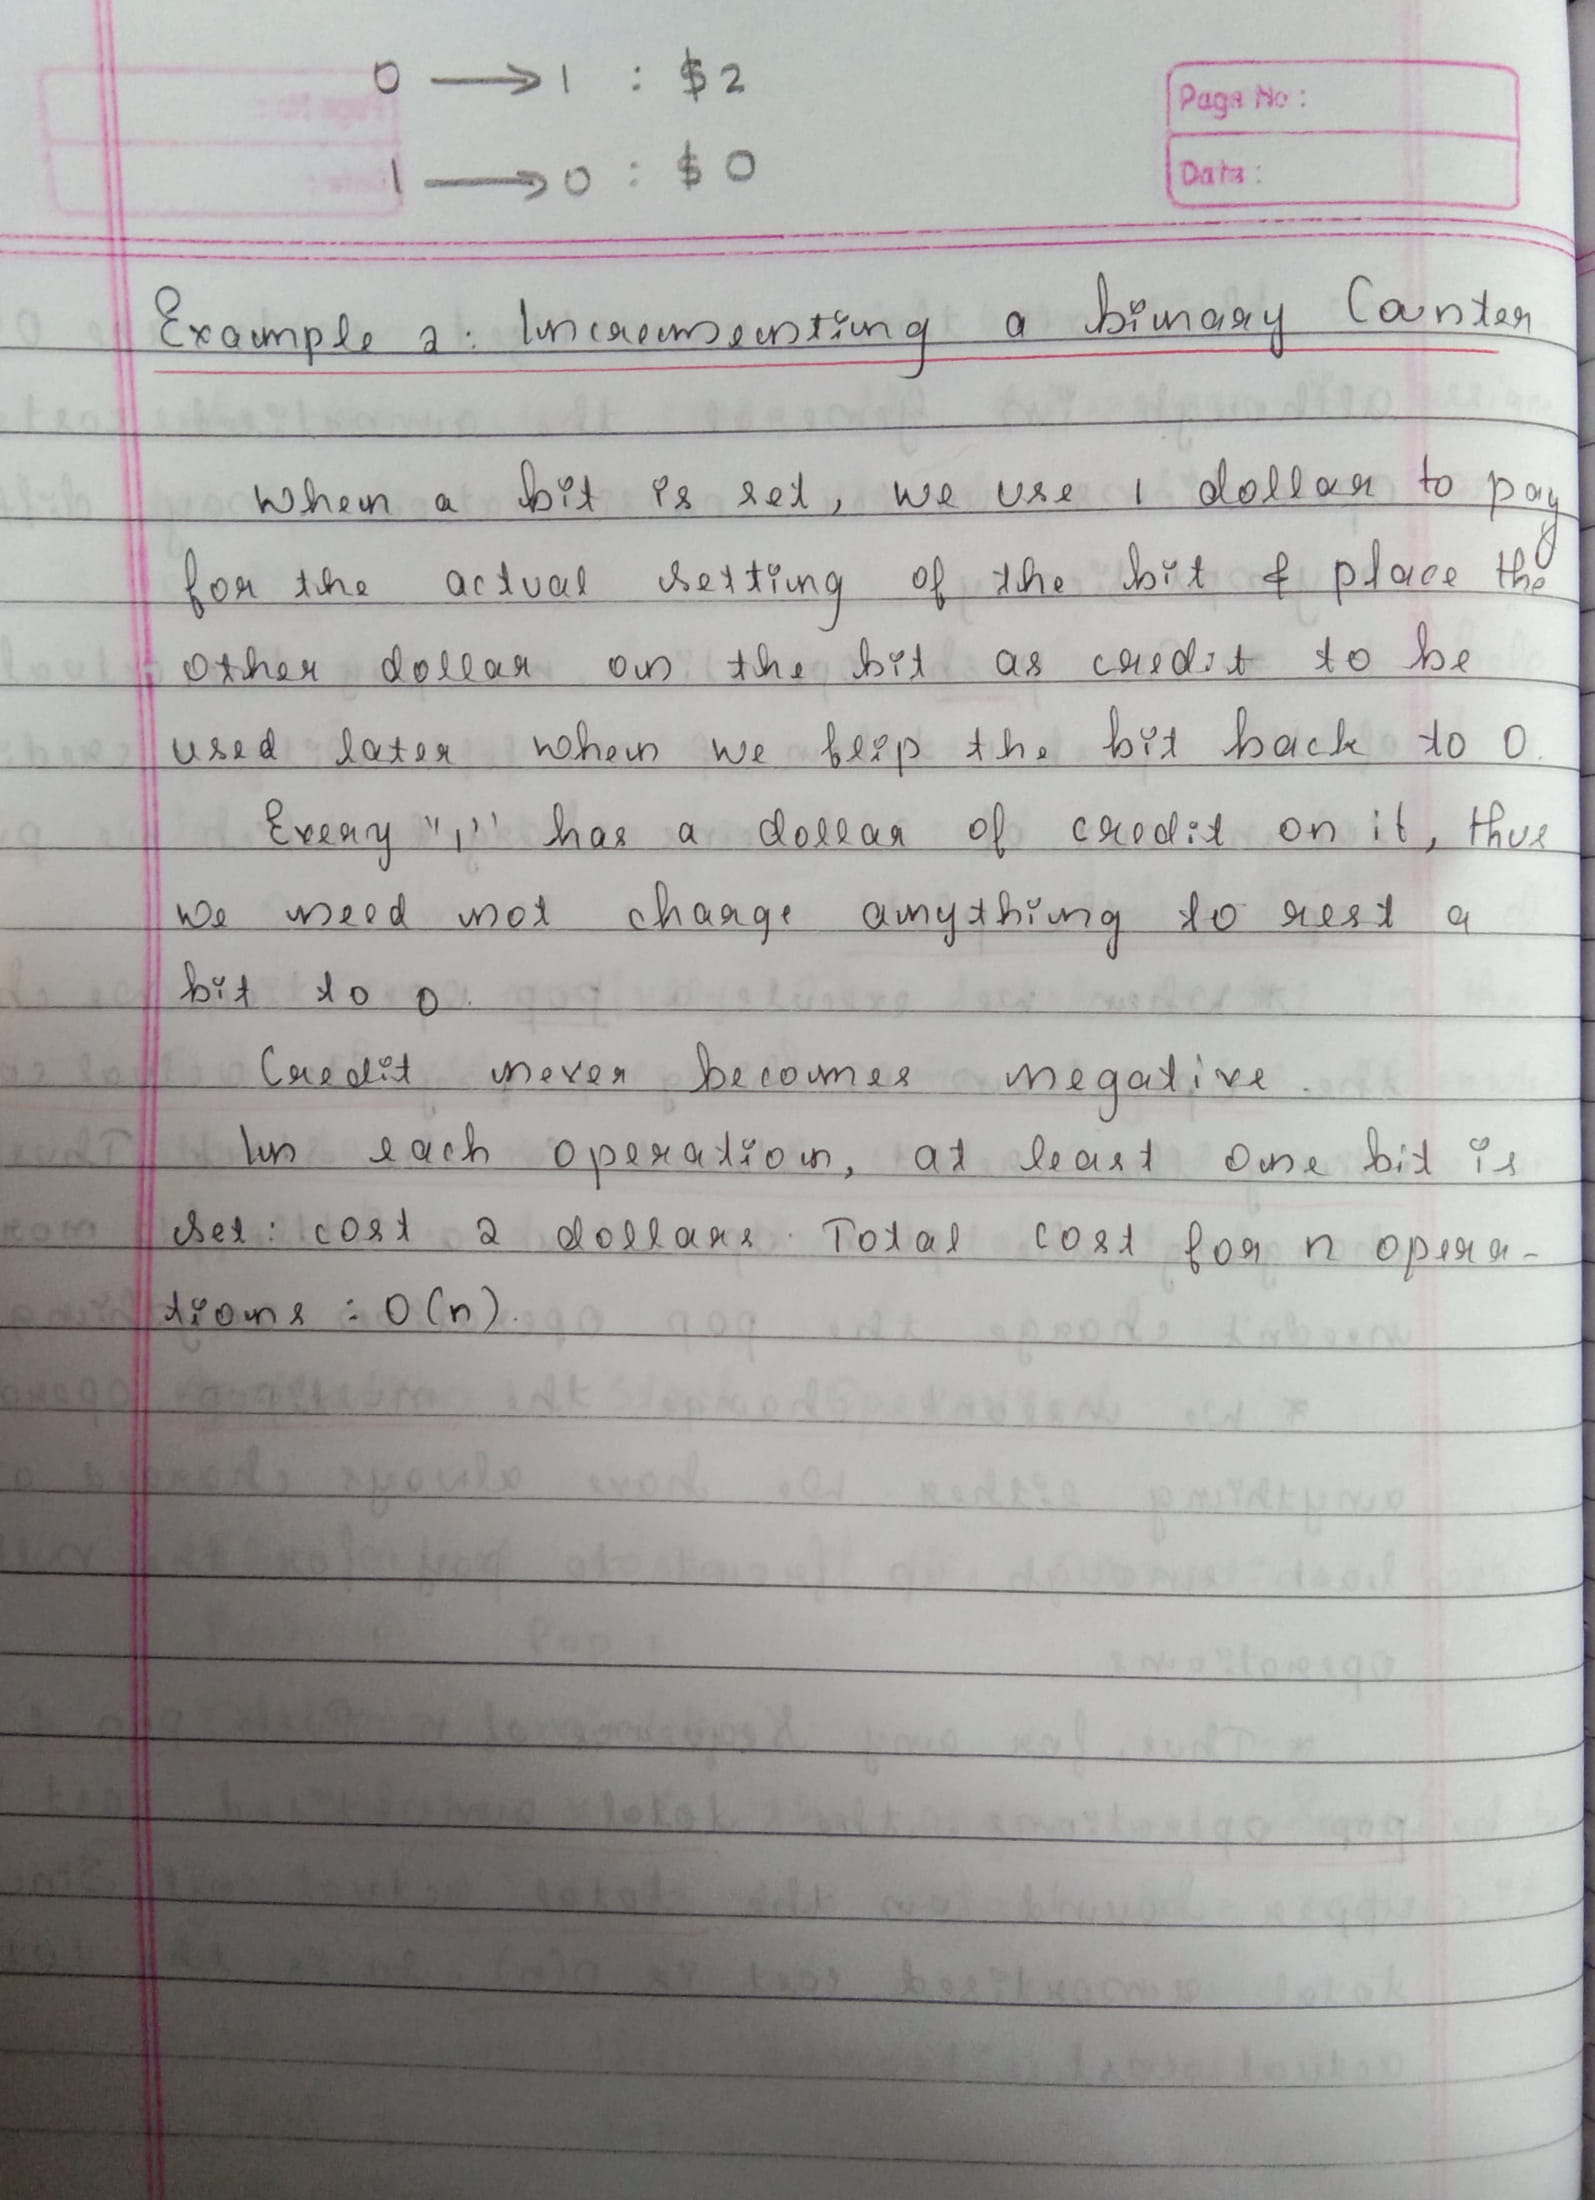 0 → 1 : $2
Page No :
1 → 0 : $0
Date :
Example 2 : Incrementing a binary Counter
When a bit is set, we use 1 dollar to pay
for the actual setting of the bit & place the
other dollar on the bit as credit to be
used later when we flip the bit back to 0.
Every "1" has a dollar of credit on it, thus
we need not charge anything to rest a
bit to 0.
Credit never becomes negative.
In each operation, at least one bit is
set : cost 2 dollars. Total cost for n opera-
tions : O(n).